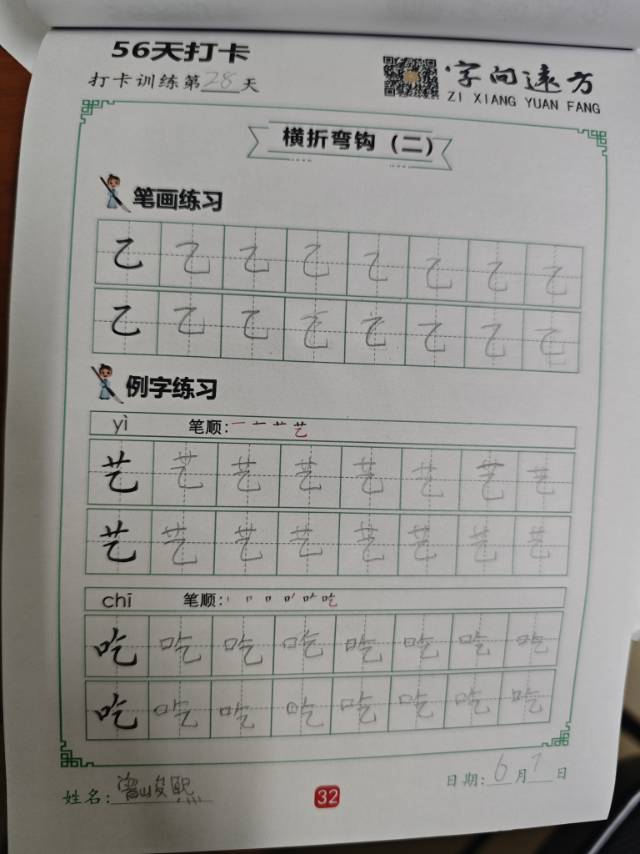 56天打卡
打卡训练第28天
字向远方
ZI XIANG YUAN FANG
横折弯钩（二）
笔画练习
乙 乙 乙 乙 乙 乙 乙 乙
乙 乙 乙 乙 乙 乙 乙 乙
例字练习
yì 笔顺: 一 十 艹 艺
艺 艺 艺 艺 艺 艺 艺 艺
艺 艺 艺 艺 艺 艺 艺 艺
chī 笔顺: 丨 𠃍 口 吃
吃 吃 吃 吃 吃 吃 吃 吃
吃 吃 吃 吃 吃 吃 吃 吃
姓名: 曾峻熙
32
日期: 6月7日